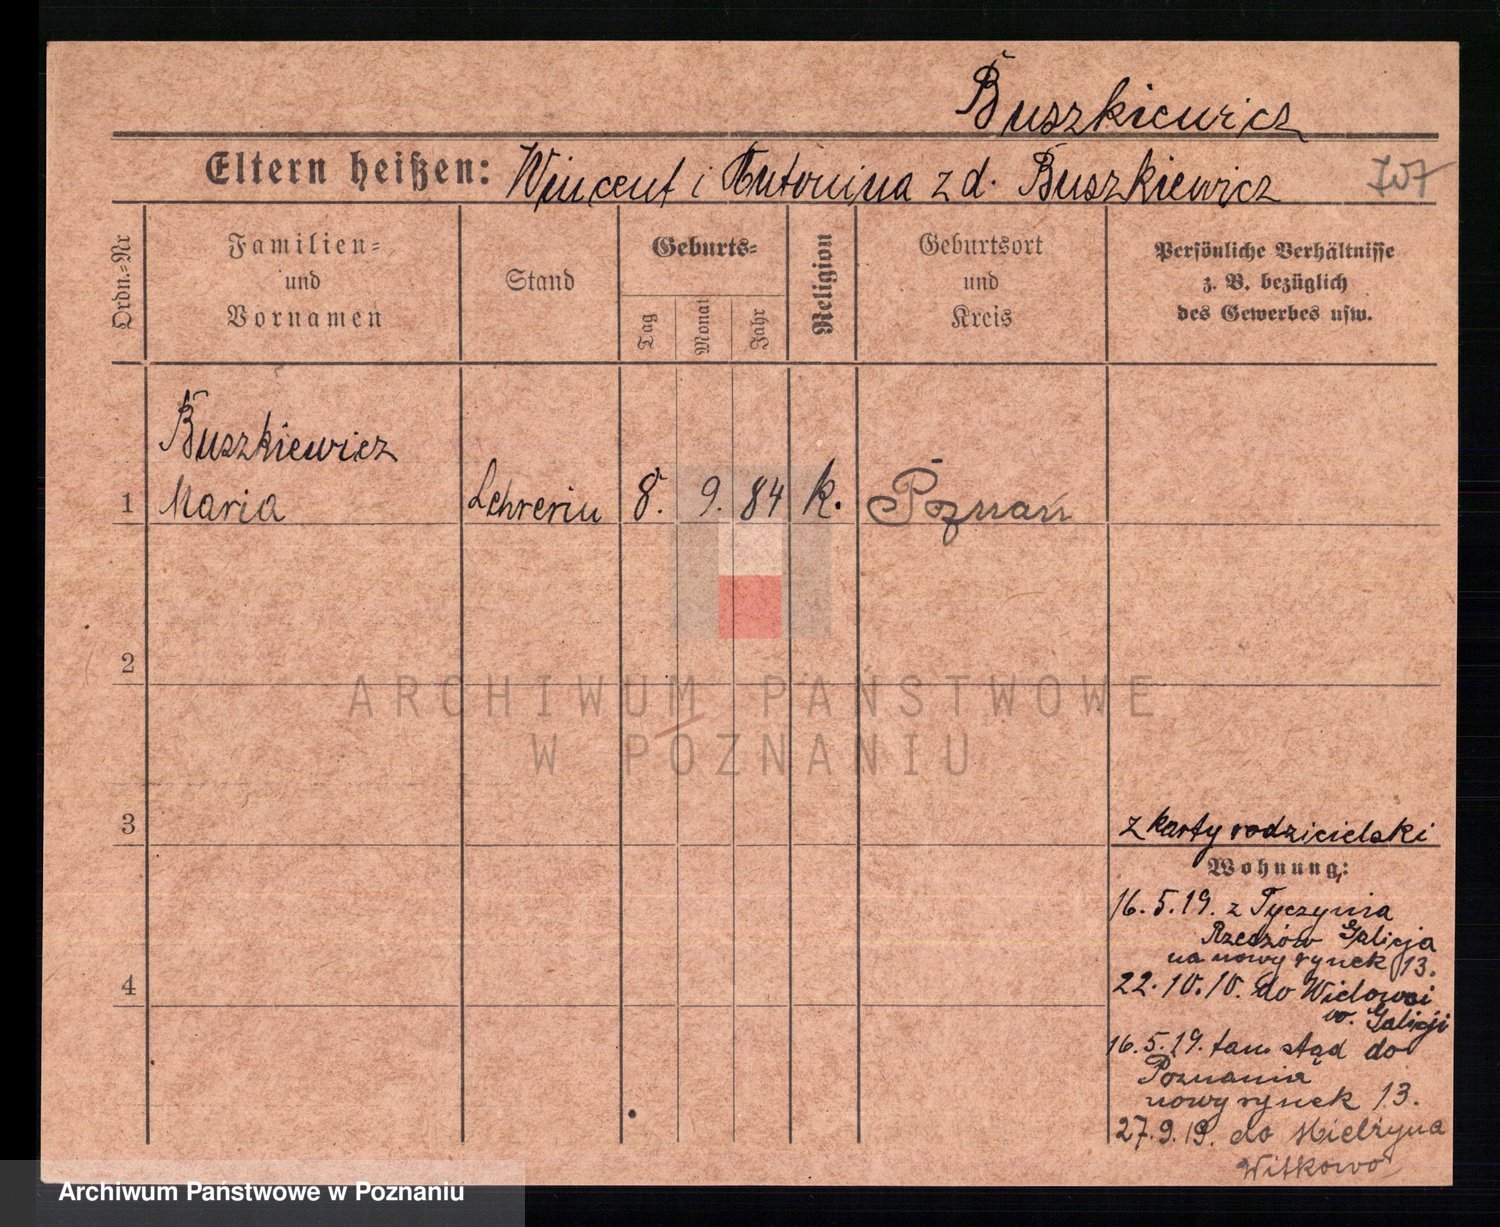 Buszkiewicz
Eltern heißen: Wincent i Antonina z d. Buszkiewicz
Ordn.=Nr
Familien=
und
Vornamen
Stand
Geburts=
Tag
Monat
Jahr
Religion
Geburtsort
und
Kreis
Persönliche Verhältnisse
z. B. bezüglich
des Gewerbes usw.
Buszkiewicz
1 Maria Lehrerin 8. 9. 84 k. Poznań
2
ARCHIWUM PAŃSTWOWE
W POZNANIU
3
z karty rodzicielski
Wohnung:
16. 5. 19. z Tyczynia
Rzeszów Galicja
na nowy rynek 13.
4
22. 10. 10. do Wielowsi
w. Galicji
16. 5. 19. tam stąd do
Poznania
nowy rynek 13.
27. 9. 19. do Mielżyna
Witkowo
Archiwum Państwowe w Poznaniu